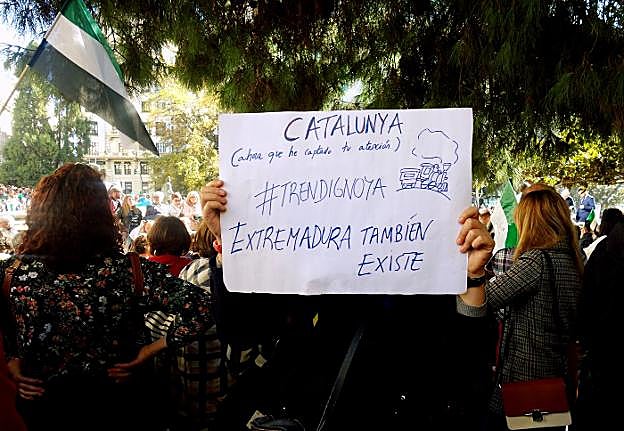 CATALUNYA
(ahora que he captado tu atención)
#TRENDIGNOYA
EXTREMADURA TAMBIÉN
EXISTE